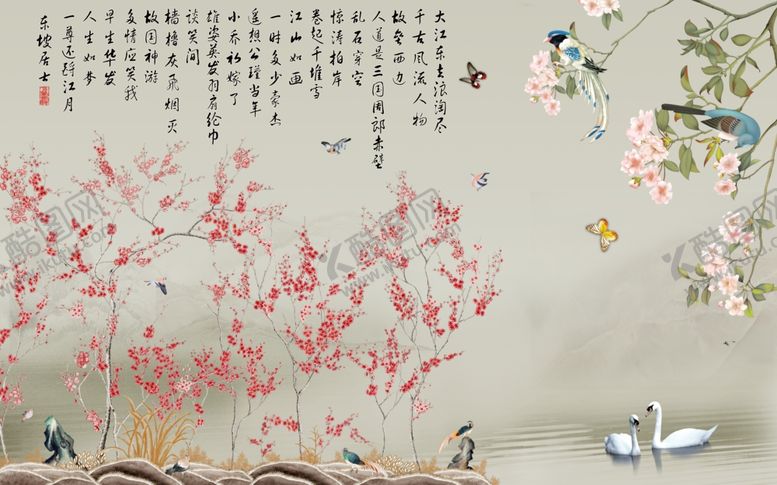 大江东去浪淘尽
千古风流人物
故垒西边
人道是三国周郎赤壁
乱石穿空
惊涛拍岸
卷起千堆雪
江山如画
一时多少豪杰
遥想公瑾当年
小乔初嫁了
雄姿英发羽扇纶巾
谈笑间
樯橹灰飞烟灭
故国神游
多情应笑我
早生华发
人生如梦
一尊还酹江月
东坡居士
酷图网
酷图网
酷图网